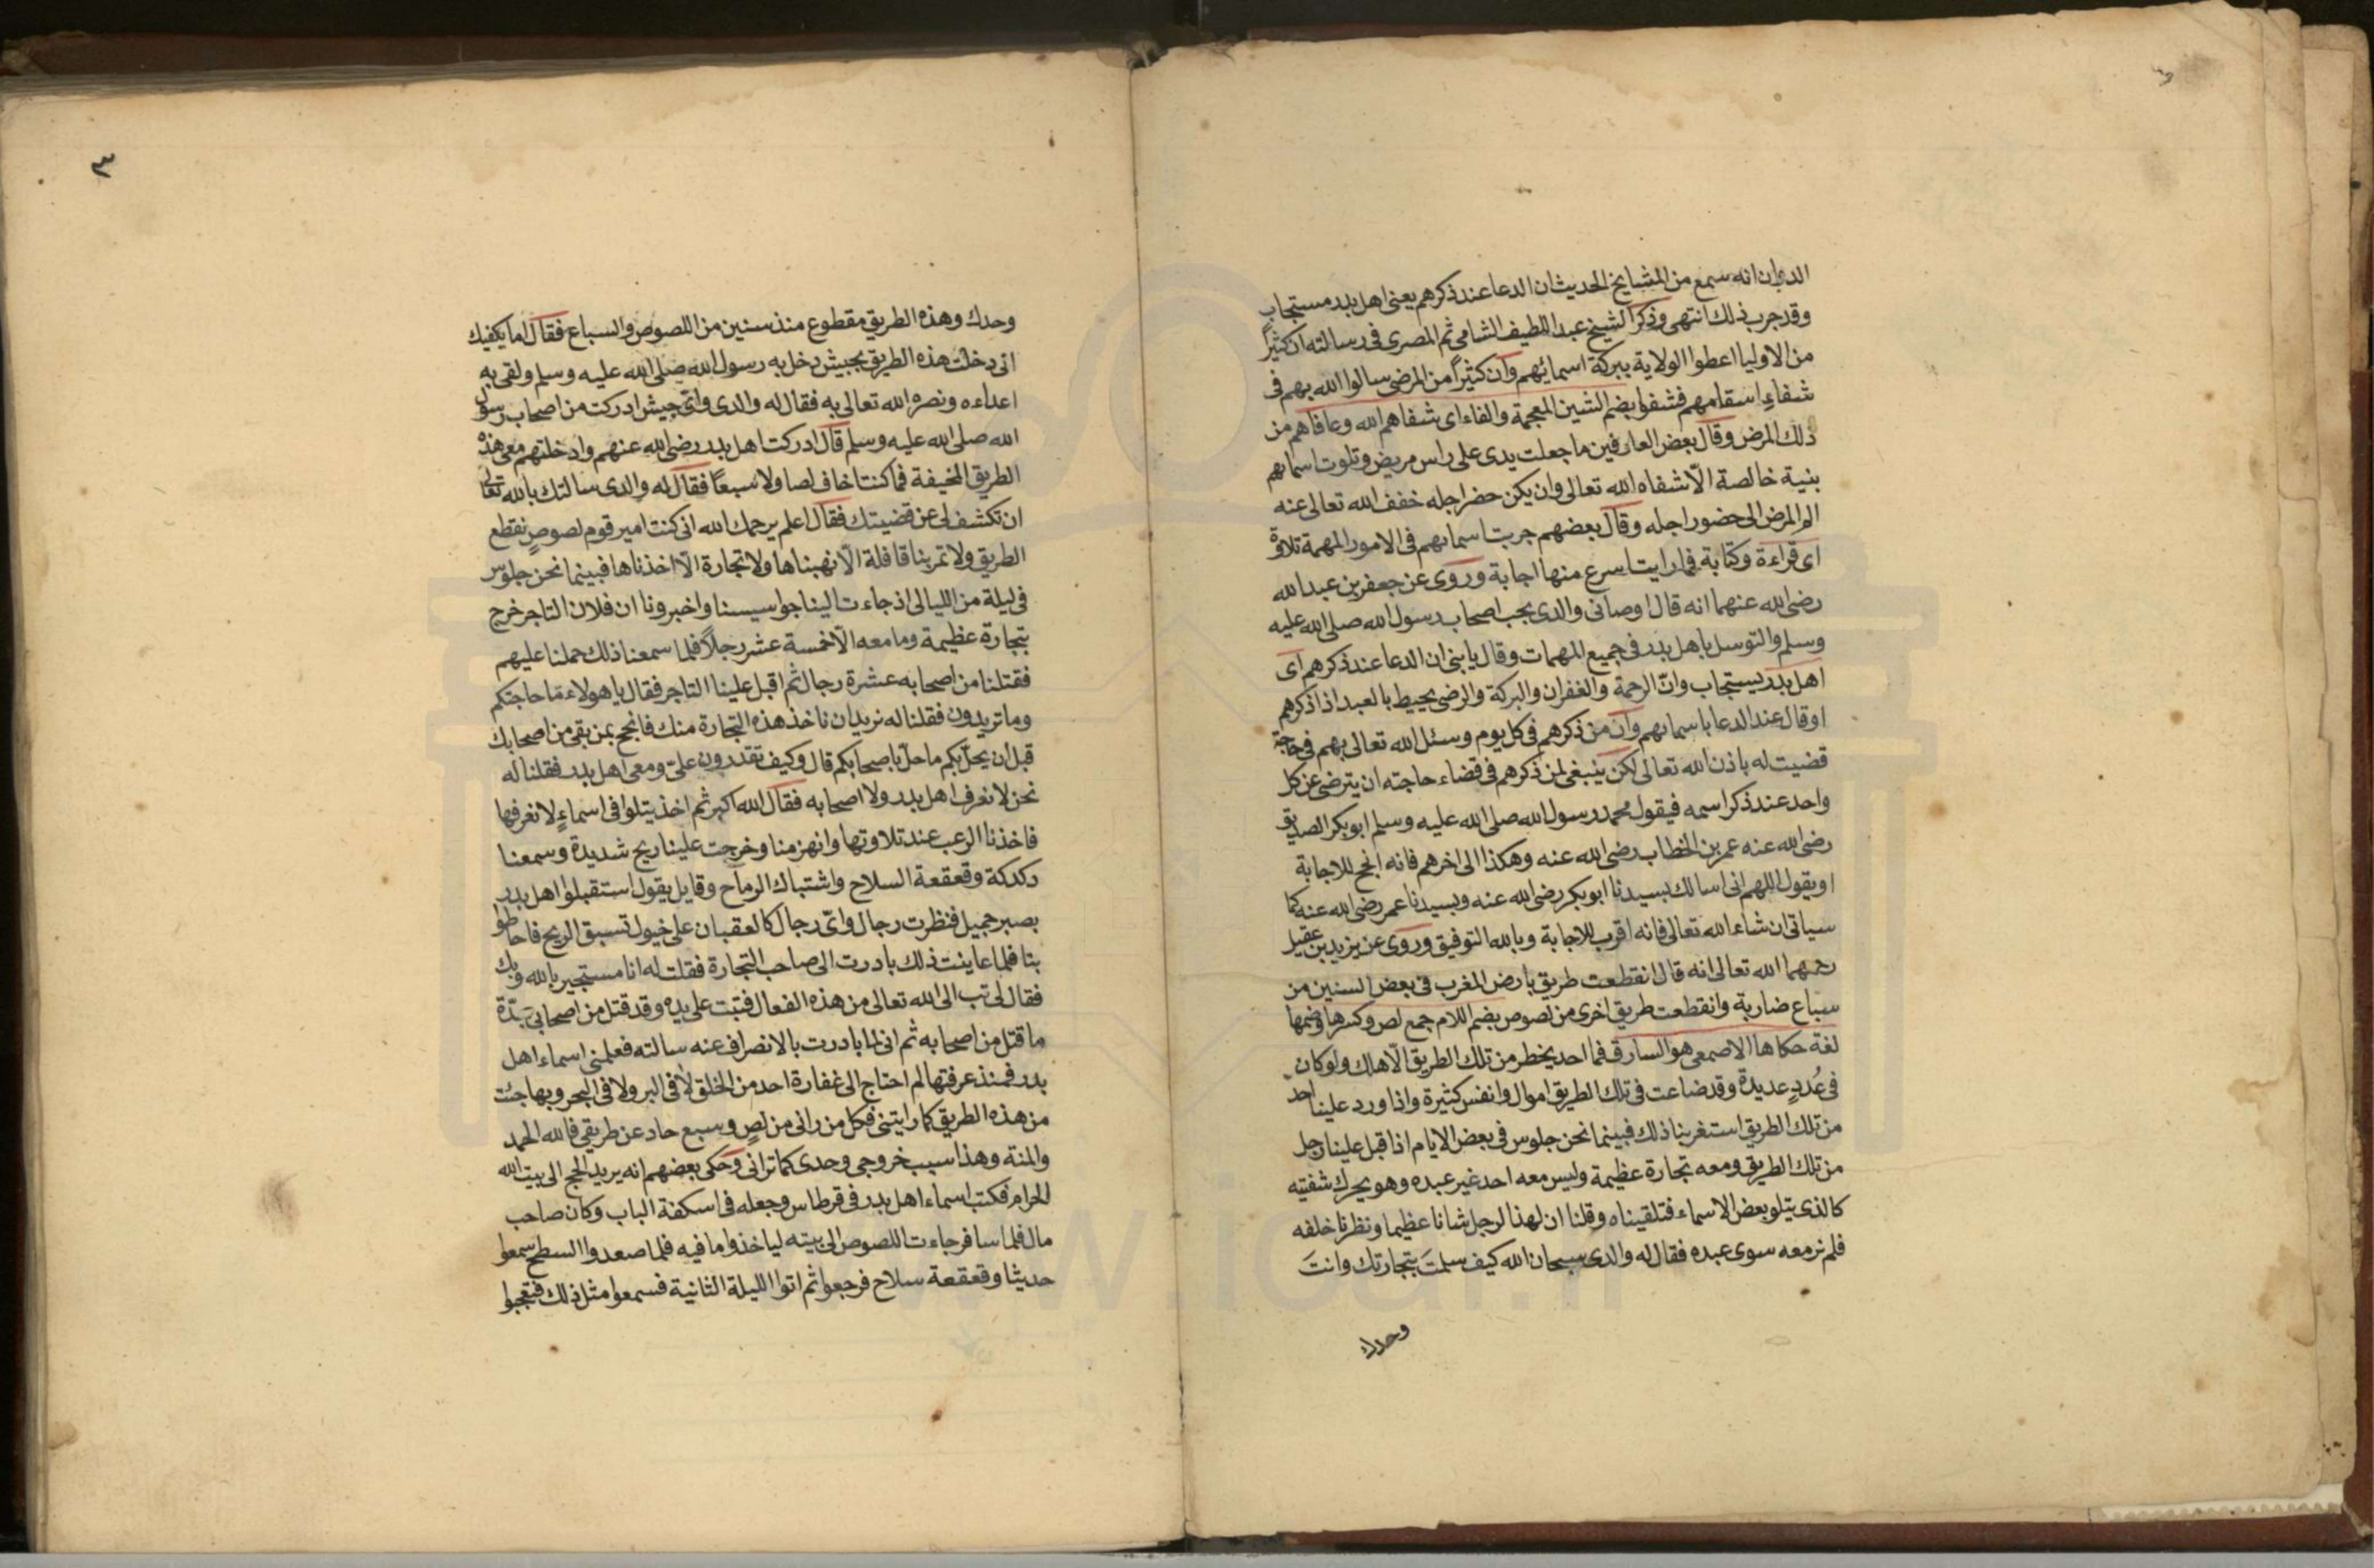 الدوانى انه سمع من المشايخ الحديث ان الدعا عند ذكرهم يعنى اهل بدر مستجاب
وقد جرب ذلك انتهى وذكر الشيخ عبد اللطيف الشامى ثم المصرى فى رسالته ان كثيرًا
من الاوليا اعطوا الولاية ببركة اسمائهم وان كثيرًا من المرضى سالوا الله بهم فى
شفاءِ اسقامهم فشفوا بضم الشين المعجمة والفاء اى شفاهم الله وعافاهم من
ذلك المرض وقال بعض العارفين ما جعلت يدى على راس مريض وتلوت اسماءهم
بنية خالصة الّا شفاه الله تعالى وان يكن حضر اجله خفف الله تعالى عنه
الم المرض الى حضور اجله وقال بعضهم جربت اسماءهم فى الامور المهمة تلاوة
اى قراءة وكتابة فما رايت اسرع منها اجابة وروى عن جعفر بن عبد الله
رضى الله عنهما انه قال اوصانى والدى بحب اصحاب رسول الله صلى الله عليه
وسلم والتوسل باهل بدر فى جميع المهمات وقال يا بنى ان الدعا عند ذكرهم اى
اهل بدر يستجاب وانّ الرحمة والغفران والبركة والرضى يحيط بالعبد اذا ذكرهم
او قال عند الدعا باسماءهم وان من ذكرهم فى كل يوم وسئل الله تعالى بهم فى حاجة
قضيت له باذن الله تعالى لكن ينبغى لمن ذكرهم فى قضاء حاجته ان يترضى عن كل
واحد عند ذكر اسمه فيقول محمد رسول الله صلى الله عليه وسلم ابو بكر الصديق
رضى الله عنه عمر بن الخطاب رضى الله عنه وهكذا الى اخرهم فانه انجح للاجابة
او يقول اللهم انى اسالك بسيدنا ابو بكر رضى الله عنه وبسيدنا عمر رضى الله عنه كما
سياتى ان شاء الله تعالى فانه اقرب للاجابة وبالله التوفيق وروى عن يزيد بن عقيل
رحمهما الله تعالى انه قال انقطعت طريق بارض المغرب فى بعض السنين من
سباع ضارية وانقطعت طريق اخرى من لصوص بضم اللام جمع لص وكسرها وضمها
لغة حكاها الاصمعى هو السارق فما احد يخطر من تلك الطريق الّا هلك ولو كان
فى عُددٍ عديدة وقد ضاعت فى تلك الطريق اموال وانفس كثيرة واذا ورد علينا احد
من تلك الطريق استغربنا ذلك فبينما نحن جلوس فى بعض الايام اذ اقبل علينا رجل
من تلك الطريق ومعه تجارة عظيمة وليس معه احد غير عبده وهو يحرك شفتيه
كالذى يتلو بعض الاسماء فتلقيناه وقلنا ان لهذا الرجل شانا عظيما ونظرنا خلفه
فلم نر معه سوى عبده فقال له والدى سبحان الله كيف سلمتَ بتجارتك وانتَ
وحدك
٣
وحدك وهذه الطريق مقطوع منذ سنين من اللصوص والسباع فقال اما يكفيك
انى دخلت هذه الطريق بجيش دخل به رسول الله صلى الله عليه وسلم ولقى به
اعداءه ونصره الله تعالى به فقال له والدى واىّ جيش ادركت من اصحاب رسول
الله صلى الله عليه وسلم قال ادركت اهل بدر رضى الله عنهم وادخلتهم معى هذه
الطريق المخيفة فما كنت اخاف لصا ولا سبعًا فقال له والدى سالتك بالله تعالى
ان تكشف لى عن قضيتك فقال اعلم يرحمك الله انى كنت امير قوم لصوص نقطع
الطريق ولا تمر بنا قافلة الّا نهبناها ولا تجارة الّا اخذناها فبينما نحن جلوس
فى ليلة من الليالى اذ جاءت الينا جواسيسنا واخبرونا ان فلان التاجر خرج
بتجارة عظيمة وما معه الّا خمسة عشر رجلاً فلما سمعنا ذلك حملنا عليهم
فقتلنا من اصحابه عشرة رجال ثم اقبل علينا التاجر فقال يا هولاء ما حاجتكم
وما تريدون فقلنا له نريد ان ناخذ هذه التجارة منك فانجح بمن بقى من اصحابك
قبل ان يحلّ بكم ما حلّ باصحابكم قال وكيف تقدرون علىّ ومعى اهل بدر فقلنا له
نحن لا نعرف اهل بدر ولا اصحابه فقال الله اكبر ثم اخذ يتلوا فى اسماءٍ لا نعرفها
فاخذنا الرعب عند تلاوتها وانهزمنا وخرجت علينا ريح شديدة وسمعنا
دكدكة وقعقعة السلاح واشتباك الرماح وقايل يقول استقبلوا اهل بدر
بصبر جميل فنظرت رجال واىّ رجال كالعقبان على خيول تسبق الريح فاحاطوا
بنا فلما عاينت ذلك بادرت الى صاحب التجارة فقلت له انا مستجير بالله وبك
فقال لى تب الى الله تعالى من هذه الفعال فتبت على يده وقد قتل من اصحابى عدّة
ما قتل من اصحابه ثم انى لما بادرت بالانصراف عنه سالته فعلمنى اسماء اهل
بدر فمنذ عرفتها لم احتاج الى غفارة احد من الخلق لا فى البر ولا فى البحر وبها جئت
من هذه الطريق كما رايتنى فكل من رانى من لص وسبع حاد عن طريقى فالله الحمد
والمنة وهذا سبب خروجى وحدى كما ترانى وحكى بعضهم انه يريد الحج الى بيت الله
الحرام فكتب اسماء اهل بدر فى قرطاس وجعله فى اسكفة الباب وكان صاحب
مال فلما سافر جاءت اللصوص الى بيته لياخذوا ما فيه فلما صعدوا السطح سمعوا
حديثا وقعقعة سلاح فرجعوا ثم اتوا الليلة الثانية فسمعوا مثل ذلك فتعجبوا